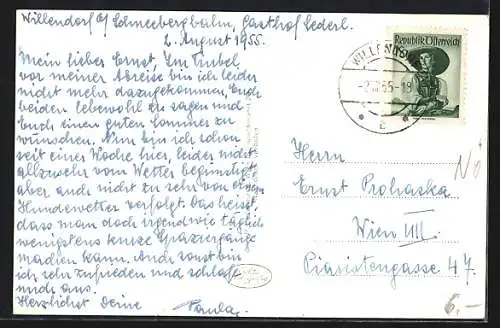 Willendorf a/ Schneebergbahn, Gasthof Lederl.
2. August 1955.
Mein lieber Ernst. Im Trubel
vor meiner Abreise bin ich leider
nicht mehr dazugekommen, Euch
beiden lebewohl zu sagen und
Euch einen guten Sommer zu
wünschen. Nun bin ich schon
seit einer Woche hier, leider nicht
allzusehr vom Wetter begünstigt
aber auch nicht zu sehr von einem
Hundewetter verfolgt. Das heisst,
dass man doch irgendwie täglich
wenigstens kurze Spaziergänge
machen kann. Auch sonst bin
ich sehr zufrieden und schlafe
mich aus.
Herzlichst Deine Paula
Republik Österreich
WILLENDORF
-2.VIII.55-18
Herrn
Ernst Prohaska
Wien VIII.
Piaristengasse 47.
6,-